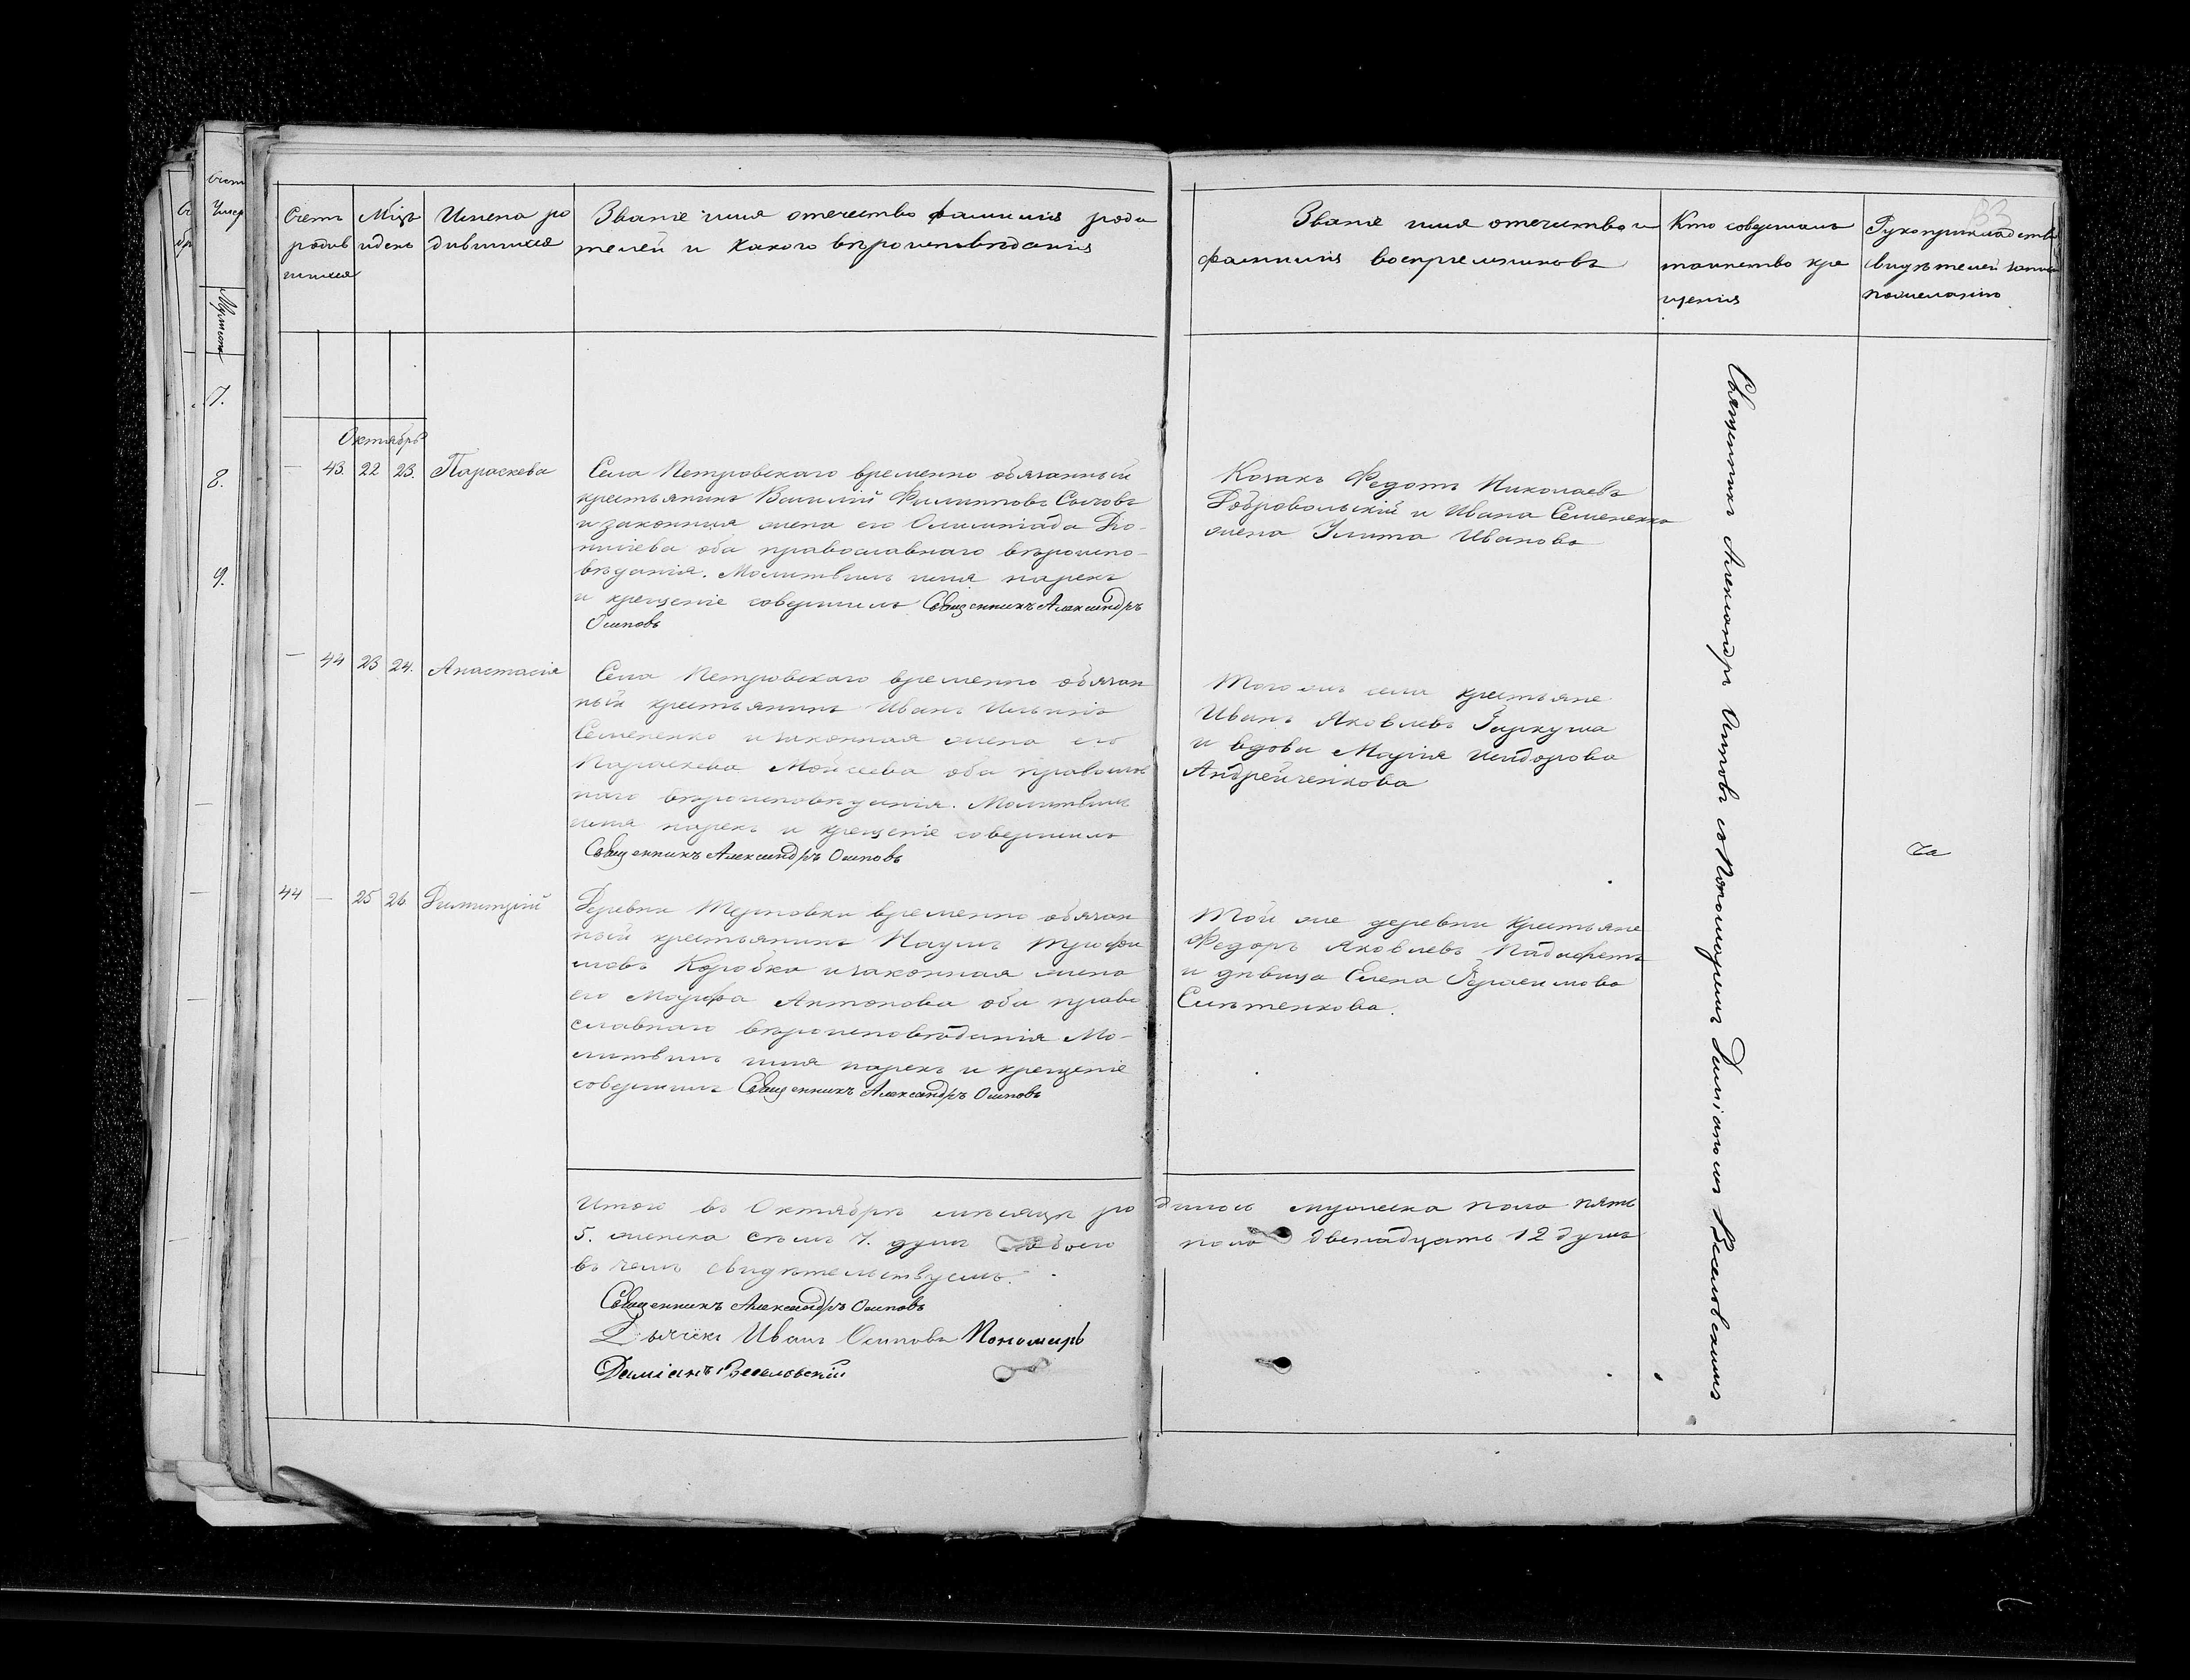 Счетъ
родив
шихся
Мцъ
и день
Имена ро
дившихся
Званіе имя отечество фамилія роди
телей и какого вѣроисповѣданія
Званіе имя отечество и
фамилія воспріемниковъ
Кто совершалъ
таинство кре
щенія
Рукоприкладство
свидѣтелей записи
по желанію
Октябрь
— 43. 22 23. Параскева
Села Петровскаго временно обязанный
крестьянинъ Василій Филипповъ Сычовъ
и законная жена его Олимпіада Діо-
нисіева оба православнаго вѣроиспо-
вѣданія. Молитвилъ имя нарекъ
и крещеніе совершилъ Священникъ Александръ
Осиповъ
Козакъ Федотъ Николаевъ
Добровольскій и Ивана Семененка
жена Улита Иванова
— 44 23 24. Анастасія
Села Петровскаго временно обязан
ный крестьянинъ Иванъ Ильинъ
Семененко и законная жена его
Параскева Мойсеева оба православ
наго вѣроисповѣданія. Молитвилъ
имя нарекъ и крещеніе совершилъ
Священникъ Александръ Осиповъ
Того же села крестьяне
Иванъ Яковлевъ Гаркуша
и вдова Марія Исидорова
Андрейченкова
44 — 25 26 Димитрій
Деревни Терновки временно обязан
ный крестьянинъ Наумъ Трофи
мовъ Коробка и законная жена
его Марфа Антонова оба право
славнаго вѣроисповѣданія Мо-
литвилъ имя нарекъ и крещеніе
совершилъ Священникъ Александръ Осиповъ
Той же деревни крестьяне
Федоръ Яковлевъ
и дѣвица Елена Герасимова
Священникъ Александръ Осиповъ съ Пономаремъ Даміаномъ Веселовскимъ
Итого въ Октябрѣ мѣсяцѣ ро дилось мужеска пола пять
5. женска семь 7. душъ обоего пола двенадцать 12 душъ
въ чемъ свидѣтельствуемъ.
Священникъ Александръ Осиповъ
Дьячекъ Иванъ Осиповъ Пономарь
Даміанъ Веселовскій
7.
8.
9.